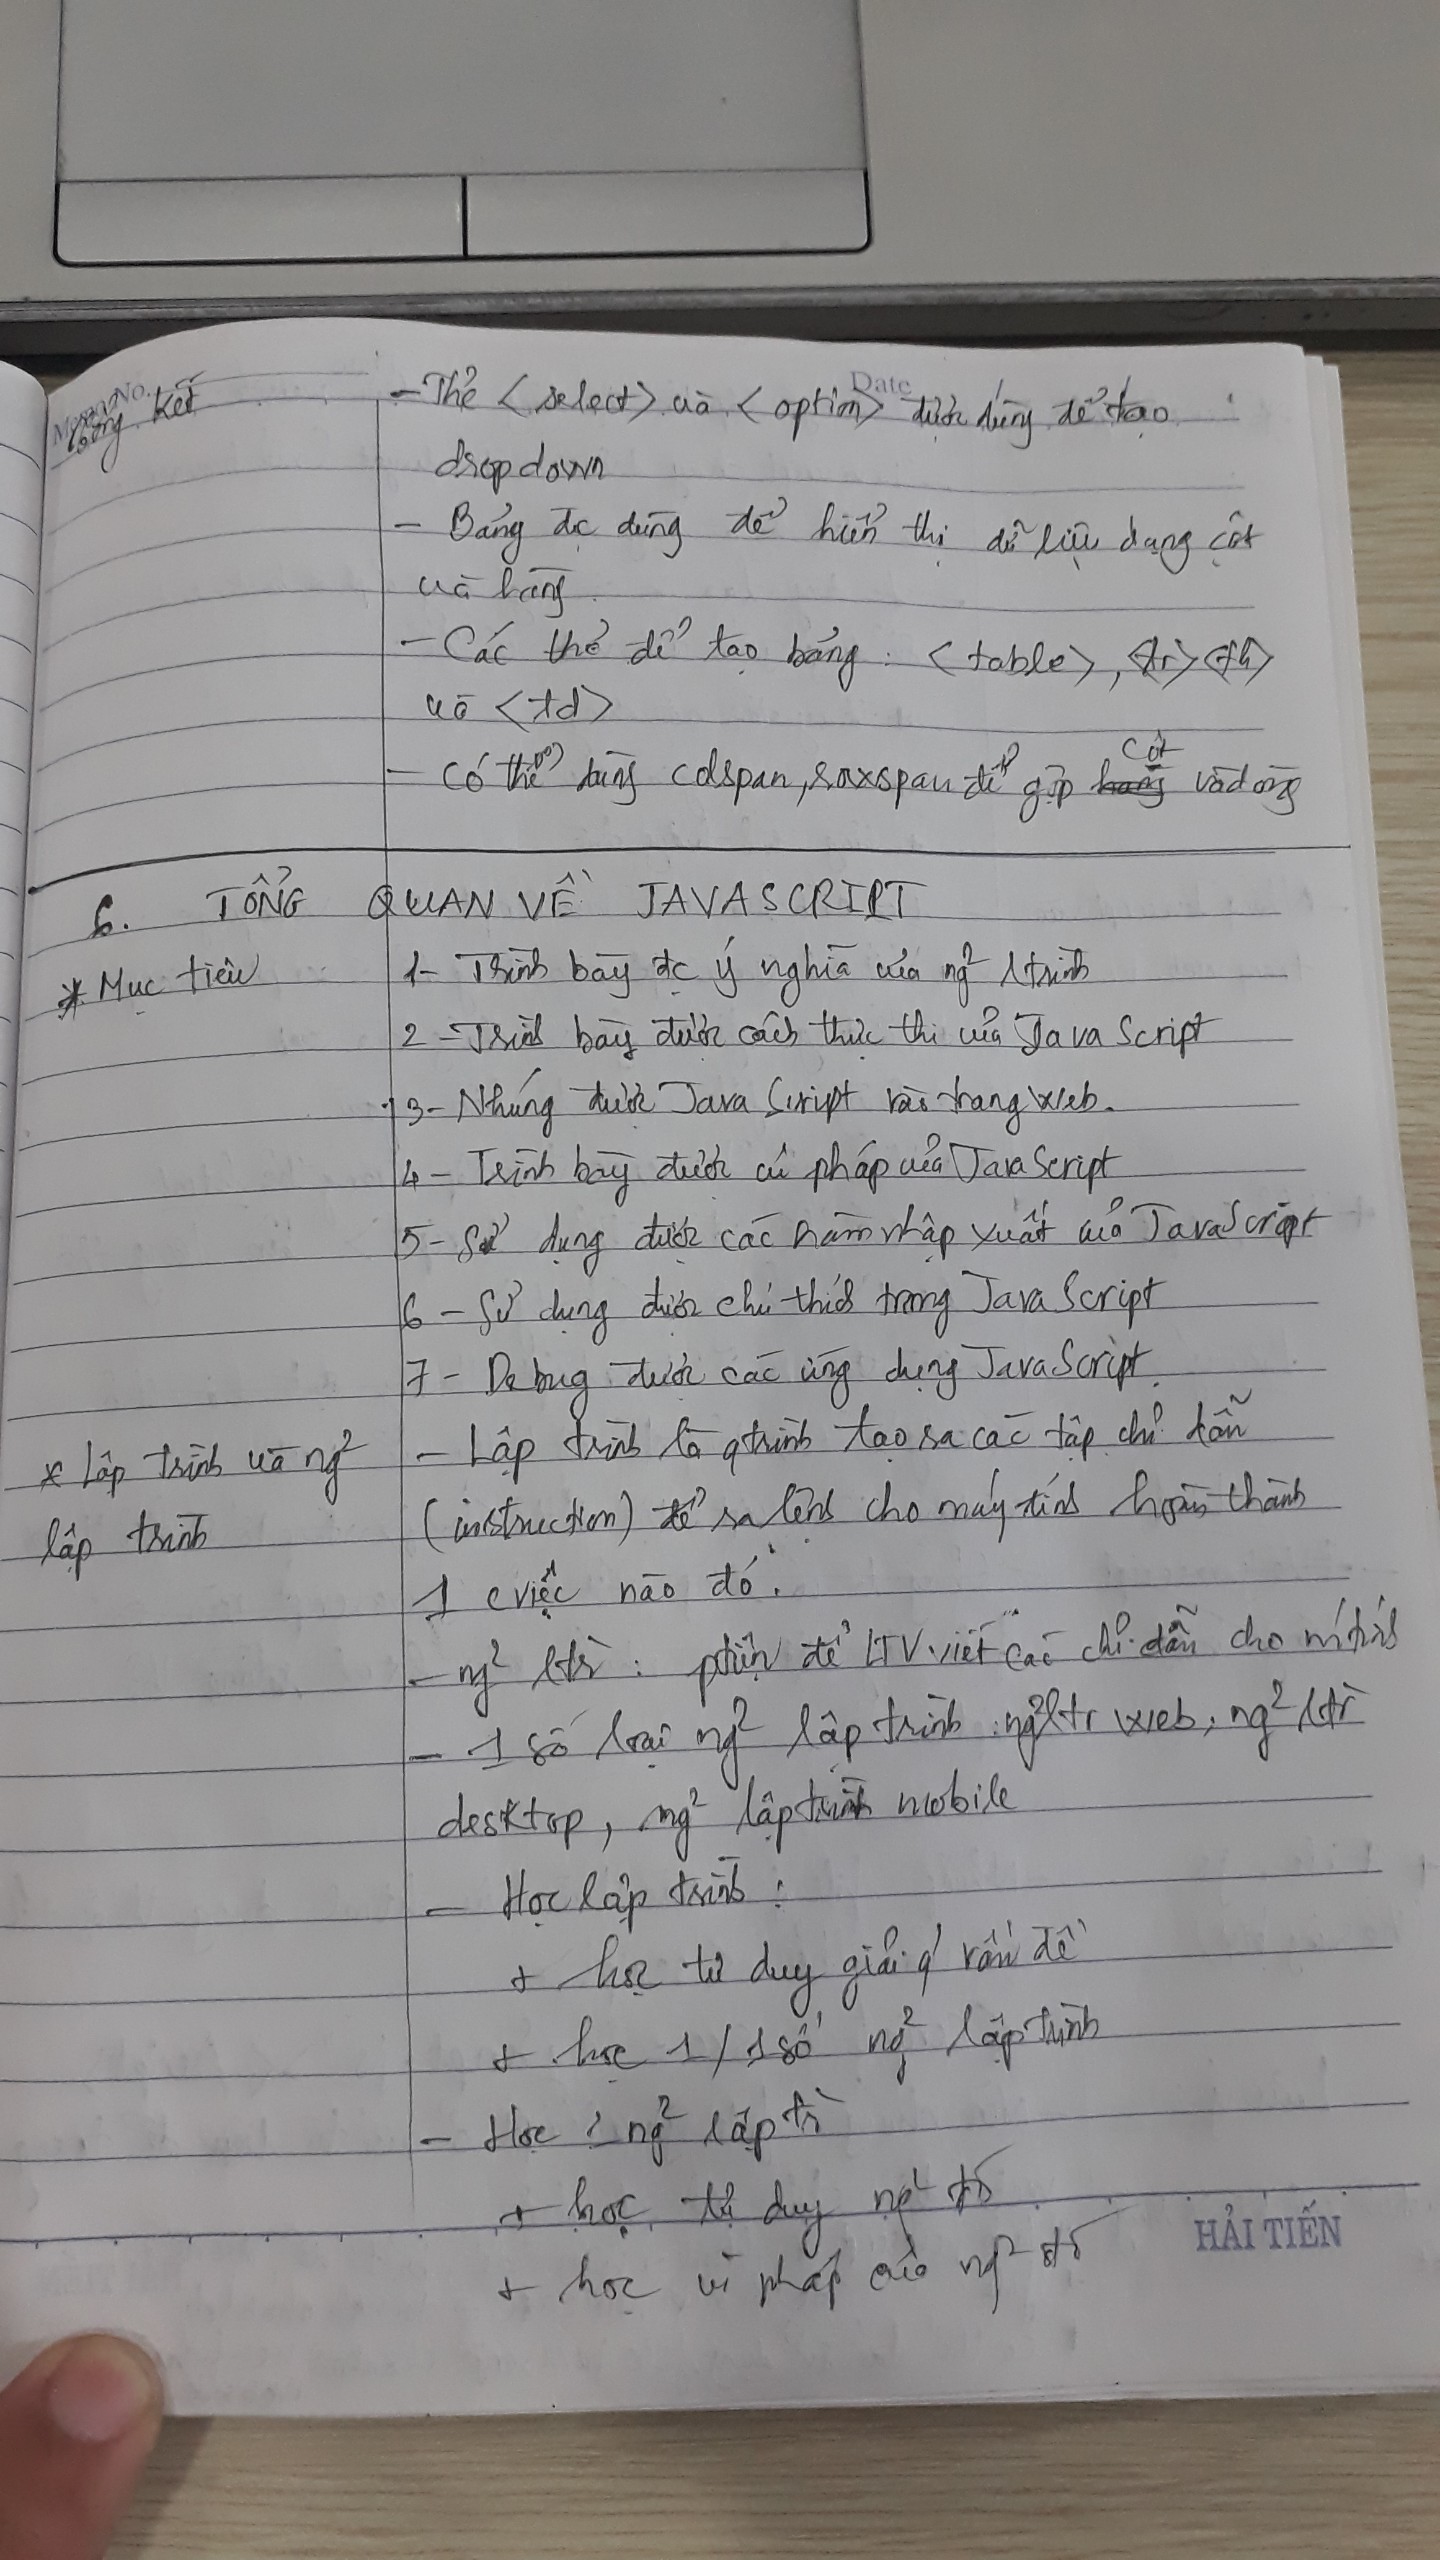 No.
Date
Tổng kết
- Thẻ <select> và <option> được dùng để tạo
dropdown
- Bảng đc dùng để hiển thị dữ liệu dạng cột
và hàng.
- Các thẻ để tạo bảng: <table>, <tr> <th>
và <td>
- Có thể dùng colspan, rowspan để gộp cột và dòng
6. TỔNG QUAN VỀ JAVASCRIPT
* Mục tiêu
1- Trình bày đc ý nghĩa của ng² ltrình
2- Trình bày được cách thực thi của JavaScript
3- Nhúng được JavaScript vào trang web.
4- Trình bày được cú pháp của JavaScript
5- Sử dụng được các hàm nhập xuất của JavaScript
6- Sử dụng được chú thích trong JavaScript
7- Debug được các ứng dụng JavaScript.
* Lập trình và ng²
lập trình
- Lập trình là qtrình tạo ra các tập chỉ dẫn
(instruction) để ra lệnh cho máy tính hoàn thành
1 cviệc nào đó.
- ng² ltr: để LTV viết các chỉ dẫn cho mtính
- 1 số loại ng² lập trình: ng² ltr web, ng² ltr
desktop, ng² lập trình mobile
- Học lập trình:
+ học tư duy giải q' vấn đề
+ học 1/1 số ng² lập trình
- Học 1 ng² lập tr
+ học tư duy ng² đó
+ học cú pháp của ng² đó
HẢI TIẾN